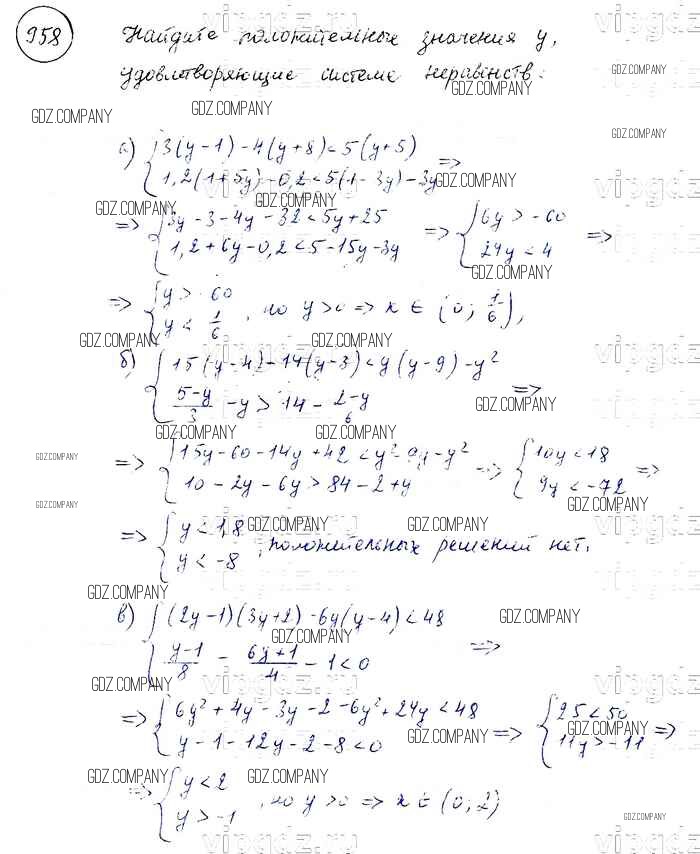 958 Найдите положительные значения y,
удовлетворяющие системе неравенств:
GDZ.COMPANY GDZ.COMPANY GDZ.COMPANY GDZ.COMPANY
а) { 3(y-1) - 4(y+8) < 5(y+5)
1,2(1+5y) - 0,2 < 5(1-3y) - 3y =>
GDZ.COMPANY GDZ.COMPANY GDZ.COMPANY
=> { 3y - 3 - 4y - 32 < 5y + 25
1,2 + 6y - 0,2 < 5 - 15y - 3y
=> { 6y > -60
24y < 4 =>
GDZ.COMPANY
=> { y > 60
y < 1/6 , но y > 0 => x ∈ (0; 1/6),
GDZ.COMPANY GDZ.COMPANY
б) { 15(y-4) - 14(y-3) < y(y-9) - y²
(5-y)/3 - y > 14 - (2-y)/6 =>
GDZ.COMPANY GDZ.COMPANY GDZ.COMPANY
=> { 15y - 60 - 14y + 42 < y² - 9y - y²
10 - 2y - 6y > 84 - 2 + y
=> { 10y < 18
9y < -72 =>
GDZ.COMPANY GDZ.COMPANY GDZ.COMPANY
=> { y < 1,8
y < -8 , положительных решений нет.
GDZ.COMPANY GDZ.COMPANY
GDZ.COMPANY
в) { (2y-1)(3y+2) - 6y(y-4) < 48
(y-1)/8 - (6y+1)/4 - 1 < 0 =>
GDZ.COMPANY GDZ.COMPANY
GDZ.COMPANY
=> { 6y² + 4y - 3y - 2 - 6y² + 24y < 48
y - 1 - 12y - 2 - 8 < 0
=> { 25 < 50
11y > -11 =>
GDZ.COMPANY GDZ.COMPANY
=> { y < 2
y > -1 , но y > 0 => x ∈ (0; 2)
GDZ.COMPANY GDZ.COMPANY
GDZ.COMPANY
vipgdz.ru